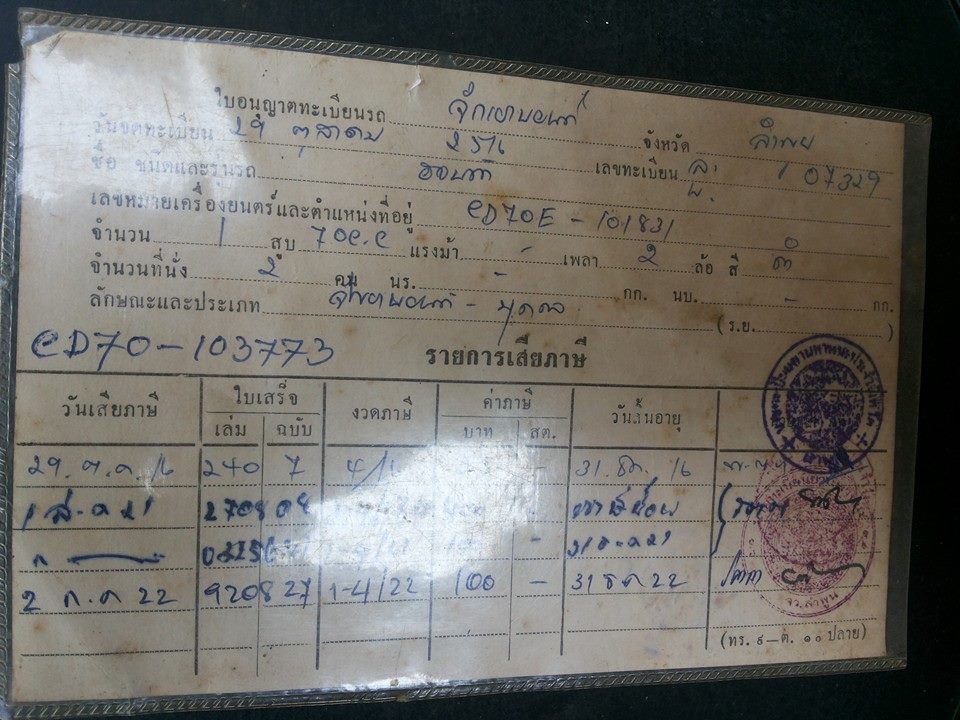 ใบอนุญาตทะเบียนรถ จักรยานยนต์
วันจดทะเบียน 29 ตุลาคม 2516 จังหวัด ลำพูน
ชื่อ ชนิดและรุ่นรถ ฮอนด้า เลขทะเบียน 07329
เลขหมายเครื่องยนต์และตำแหน่งที่อยู่ CD70E-101831
จำนวน 1 สูบ 70c.c แรงม้า - เพลา 2 ล้อ สี ดำ
จำนวนที่นั่ง 2 คน นร. - กก. นบ. - กก.
ลักษณะและประเภท จักรยานยนต์ - บุคคล (ร.ย. )
CD70-103773 รายการเสียภาษี
วันเสียภาษี ใบเสร็จ งวดภาษี ค่าภาษี วันสิ้นอายุ
เล่ม ฉบับ บาท สต.
29 ต.ค. 16 240 7 - 31 ธ.ค. 16
1 ส.ค 21 2708
-
2 ก.ค 22 9208 27 1-4/22 100 - 31 ธ.ค 22
จว.ลำพูน
(ทร. ๕-ต. ๑๐ ปลาย)